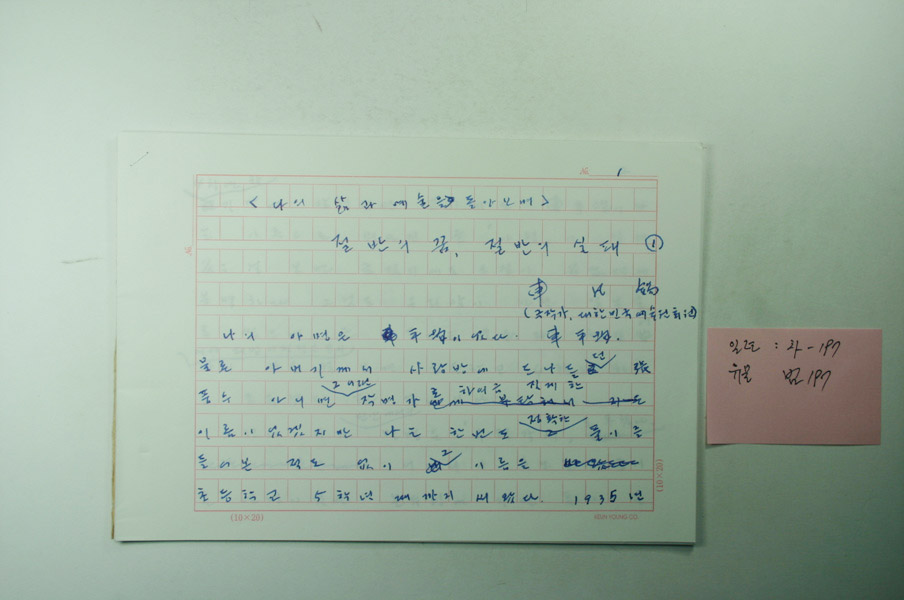 No. 1
<나의 삶과 예술을 돌아보며>
절반의 꿈, 절반의 실패 ①
車 凡 錫
(극작가, 대한민국 예술원 회원)
나의 아명은 車平錫이었다. 車平錫.
물론 아버기께서 사랑방에 드나들던 張
풍수 아니면 그 어떤 작명가로 하여금 작게한
이름이 었겠지만 나는 한번도 정확한 풀이를
들어본 적도 없이 그 이름은
초등학교 5학년 때까지 써왔다. 1935년
(10×20)
(10×20)
일련 : 라-197
유물 범 197